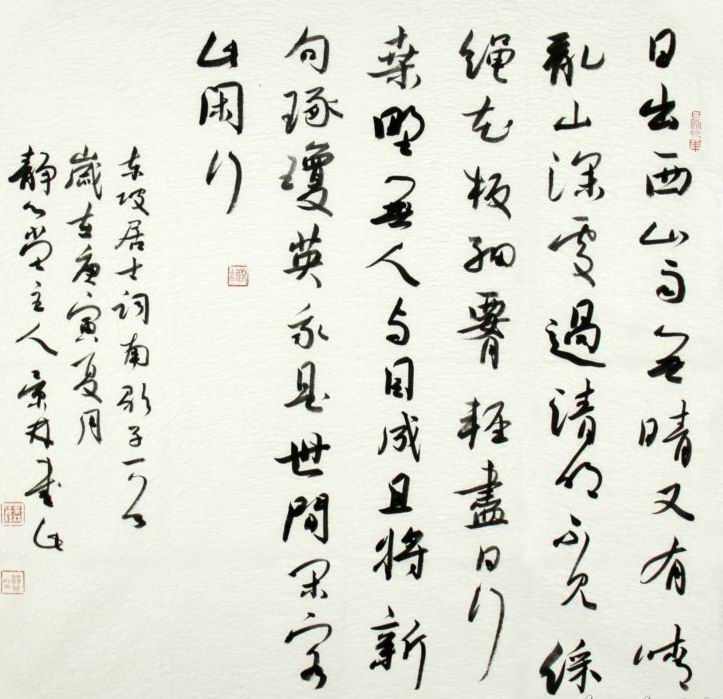 日出西山雨無晴又有晴
亂山深處過清明不見綵
繩花板細腰輕盡日行
桑野無人与目成且將新
句琢瓊英我是世間閑客
此閑行
東坡居士詞南歌子一首
歲在庚寅夏月
靜心堂主人景林書此